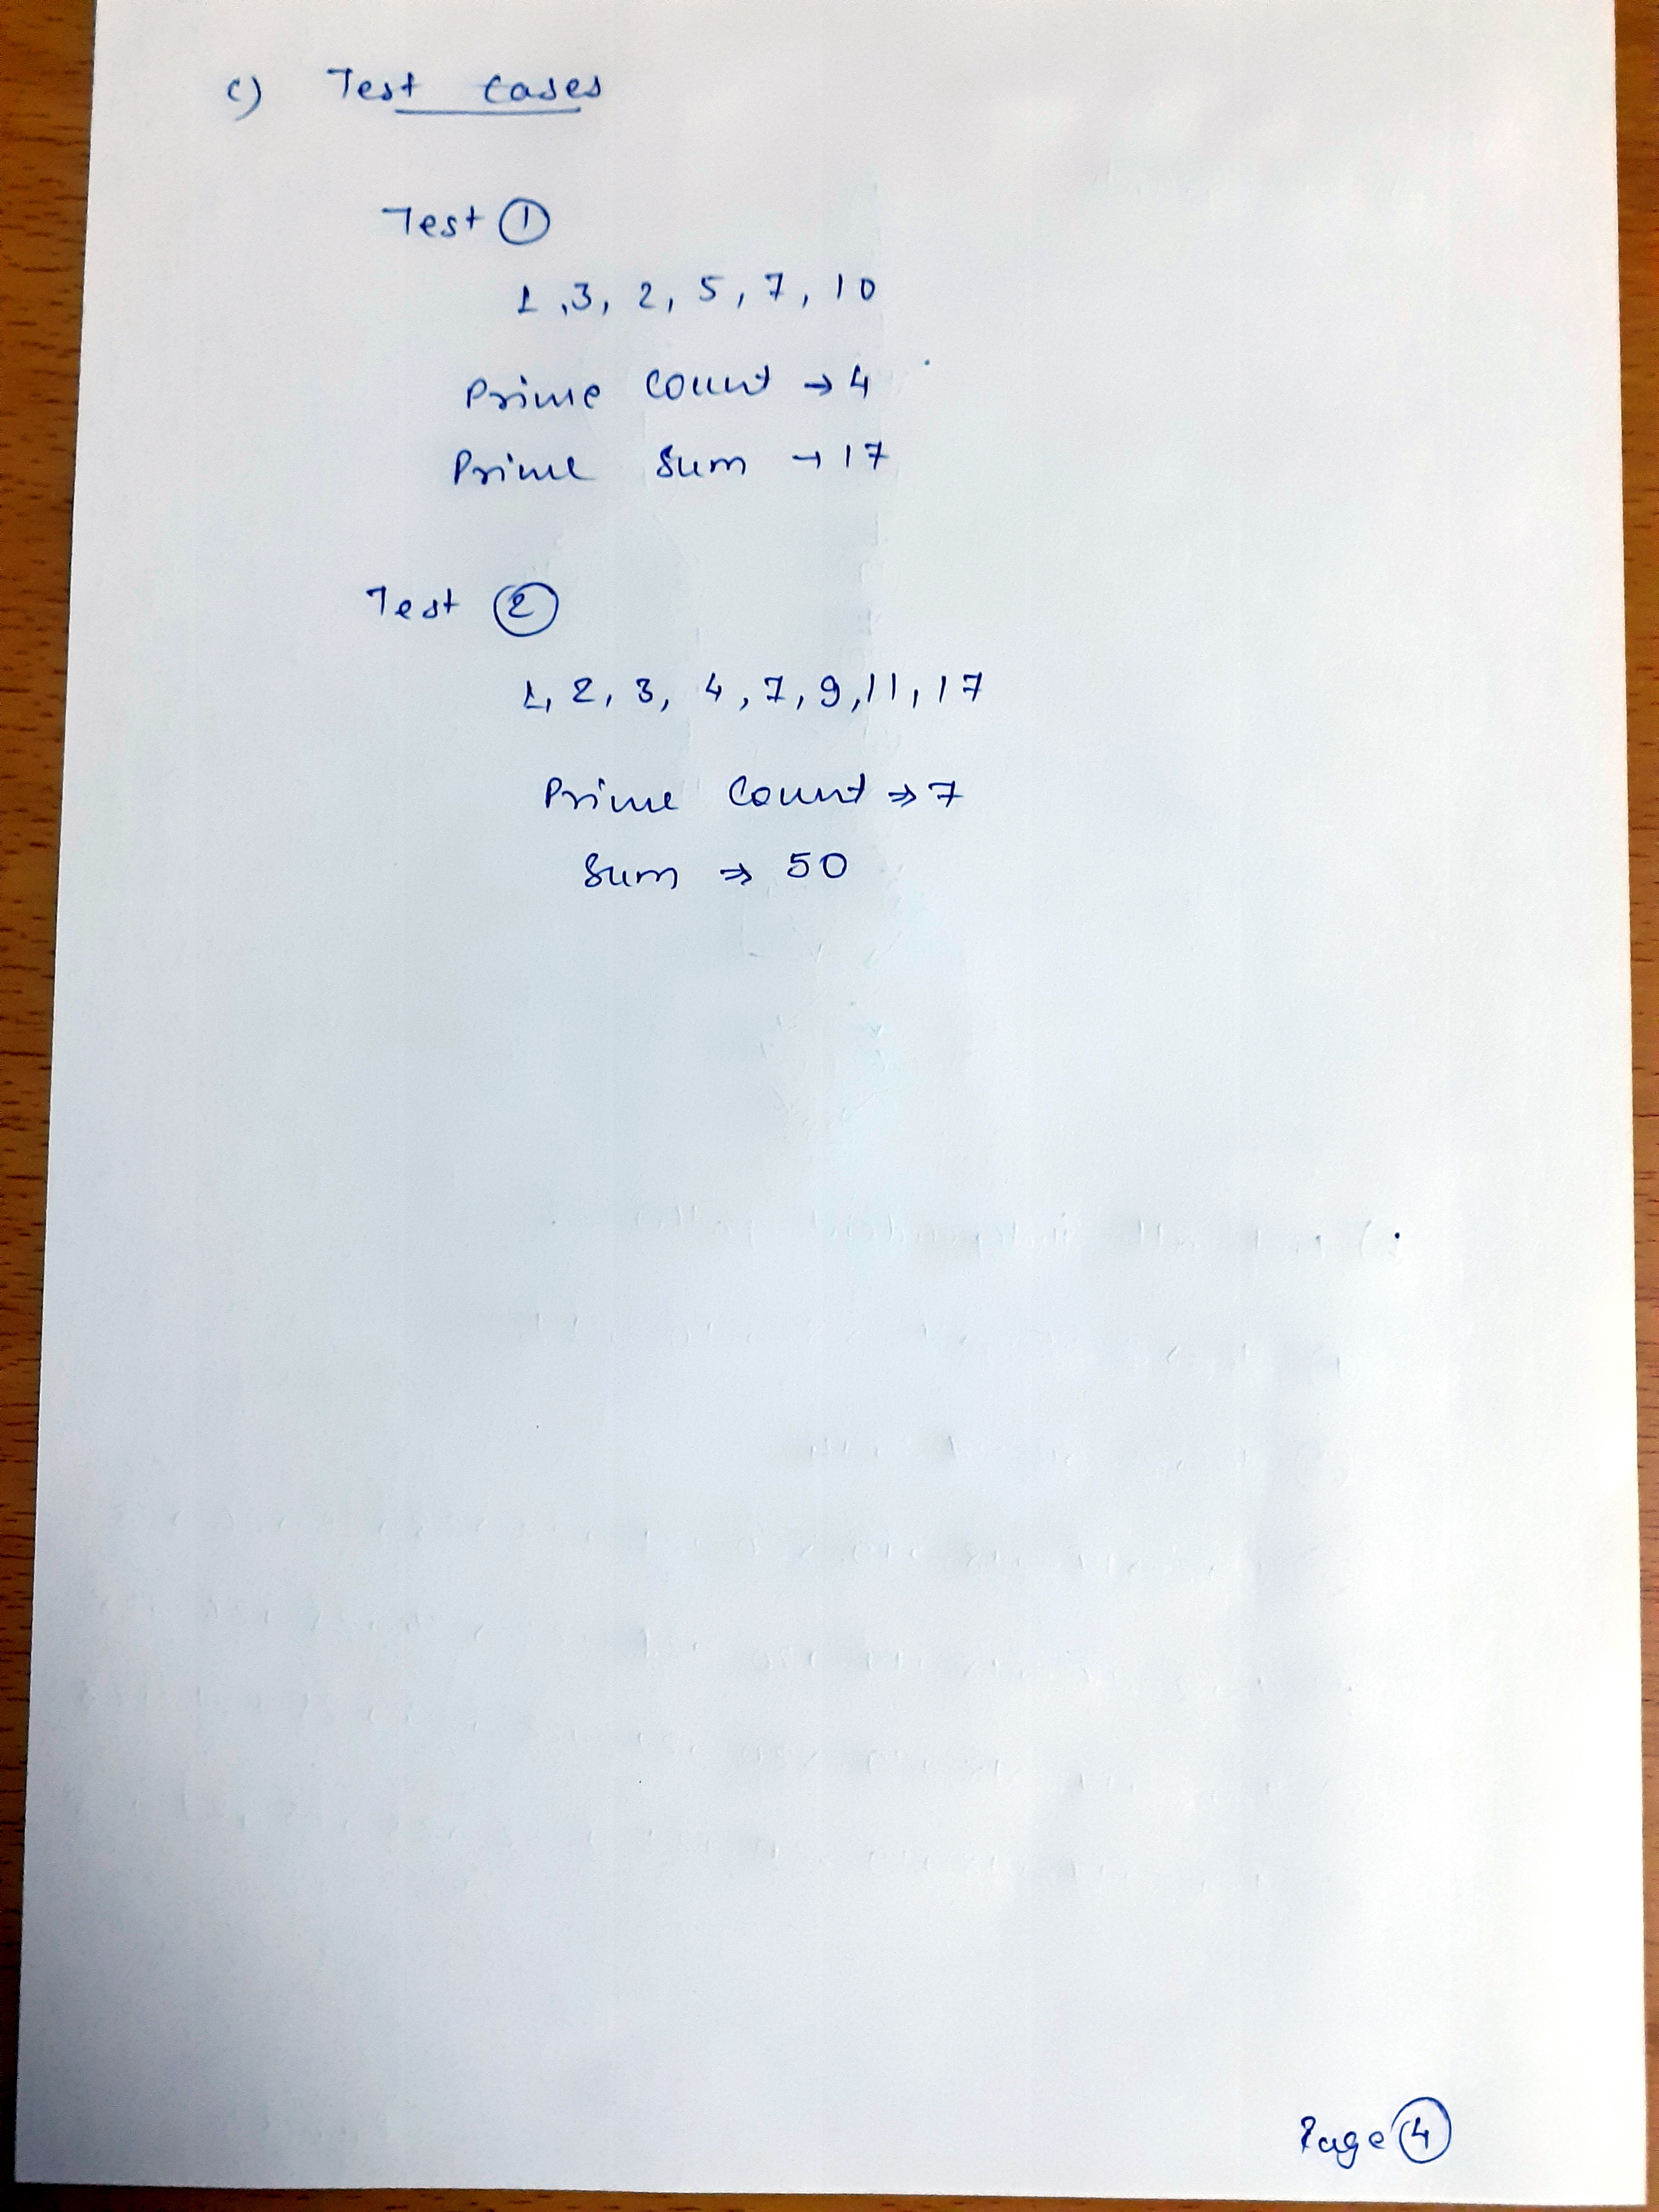 c) Test cases
Test ①
1, 3, 2, 5, 7, 10
Prime Count → 4
Prime Sum → 17
Test ②
1, 2, 3, 4, 7, 9, 11, 17
Prime Count ⇒ 7
Sum ⇒ 50
Page ④